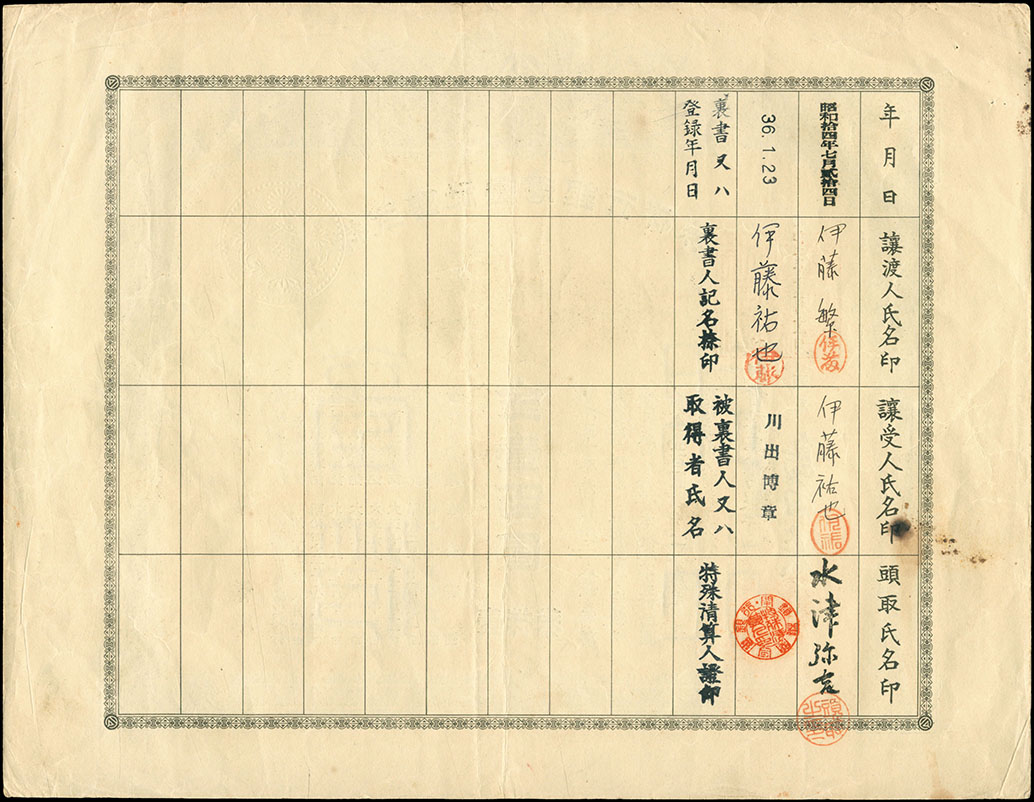 年月日
讓渡人氏名印
讓受人氏名印
頭取氏名印
昭和拾四年七月貳拾四日
伊藤 繁
伊藤祐也
水津弥吉
36.1.23
伊藤祐也
川出博章
裏書又ハ
登録年月日
裏書人記名捺印
被裏書人又ハ
取得者氏名
特殊清算人證印